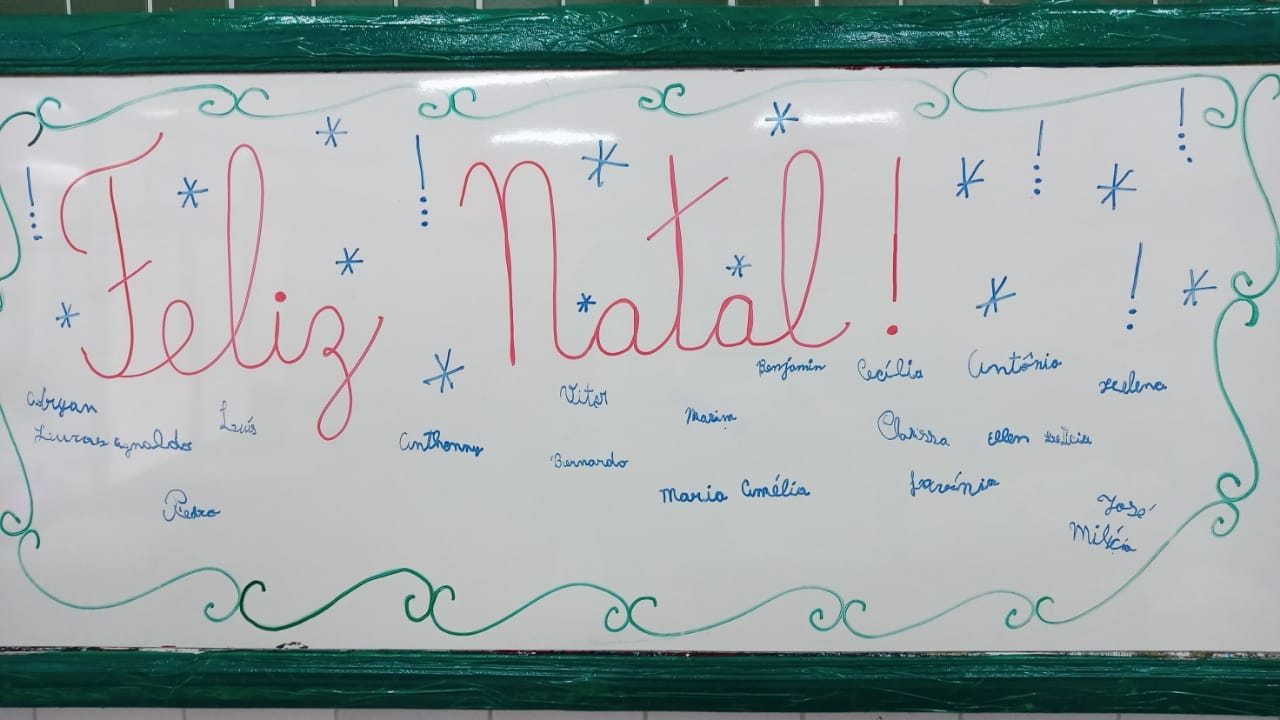 Feliz Natal!
Benjamin Cecília Antônio Helena
Adryan Luís Vitor Marina
Lucas Agnaldo Anthonny Clarissa Ellen Letícia
Bernardo
Maria Amélia Lavínia
Pedro José